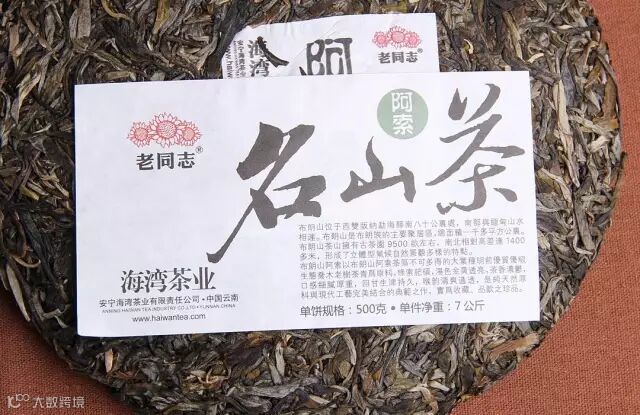 海湾
阿
老同志®
老同志®
阿索
名山茶
布朗山位于西雙版納勐海縣南八十公裏處，南部與緬甸山水
相連。布朗山是布朗族的主要聚居區，總面積一千多平方公裏。
布朗山茶山擁有古茶園9500畝左右，南北相對高差達1400
多米，形成了立體型氣候自然景觀多樣的特點。
布朗山阿索以布朗山阿索茶區不可多得的大葉種明前優質優級
生態喬木老樹茶青爲原料，條索肥碩，湯色金黃透亮，茶香濃鬱，
口感細膩厚重，回甘生津持久，喉韵清爽通透，是純天然原
料與現代工藝完美結合的典範之作，實爲收藏、品飲之珍品。
海湾茶业
安宁海湾茶业有限责任公司·中国云南
ANNING HAIWAN TEA INDUSTRY CO.,LTD·YUNNAN.CHINA
www.haiwantea.com
单饼规格：500克·单件净重：7公斤
大数跨境